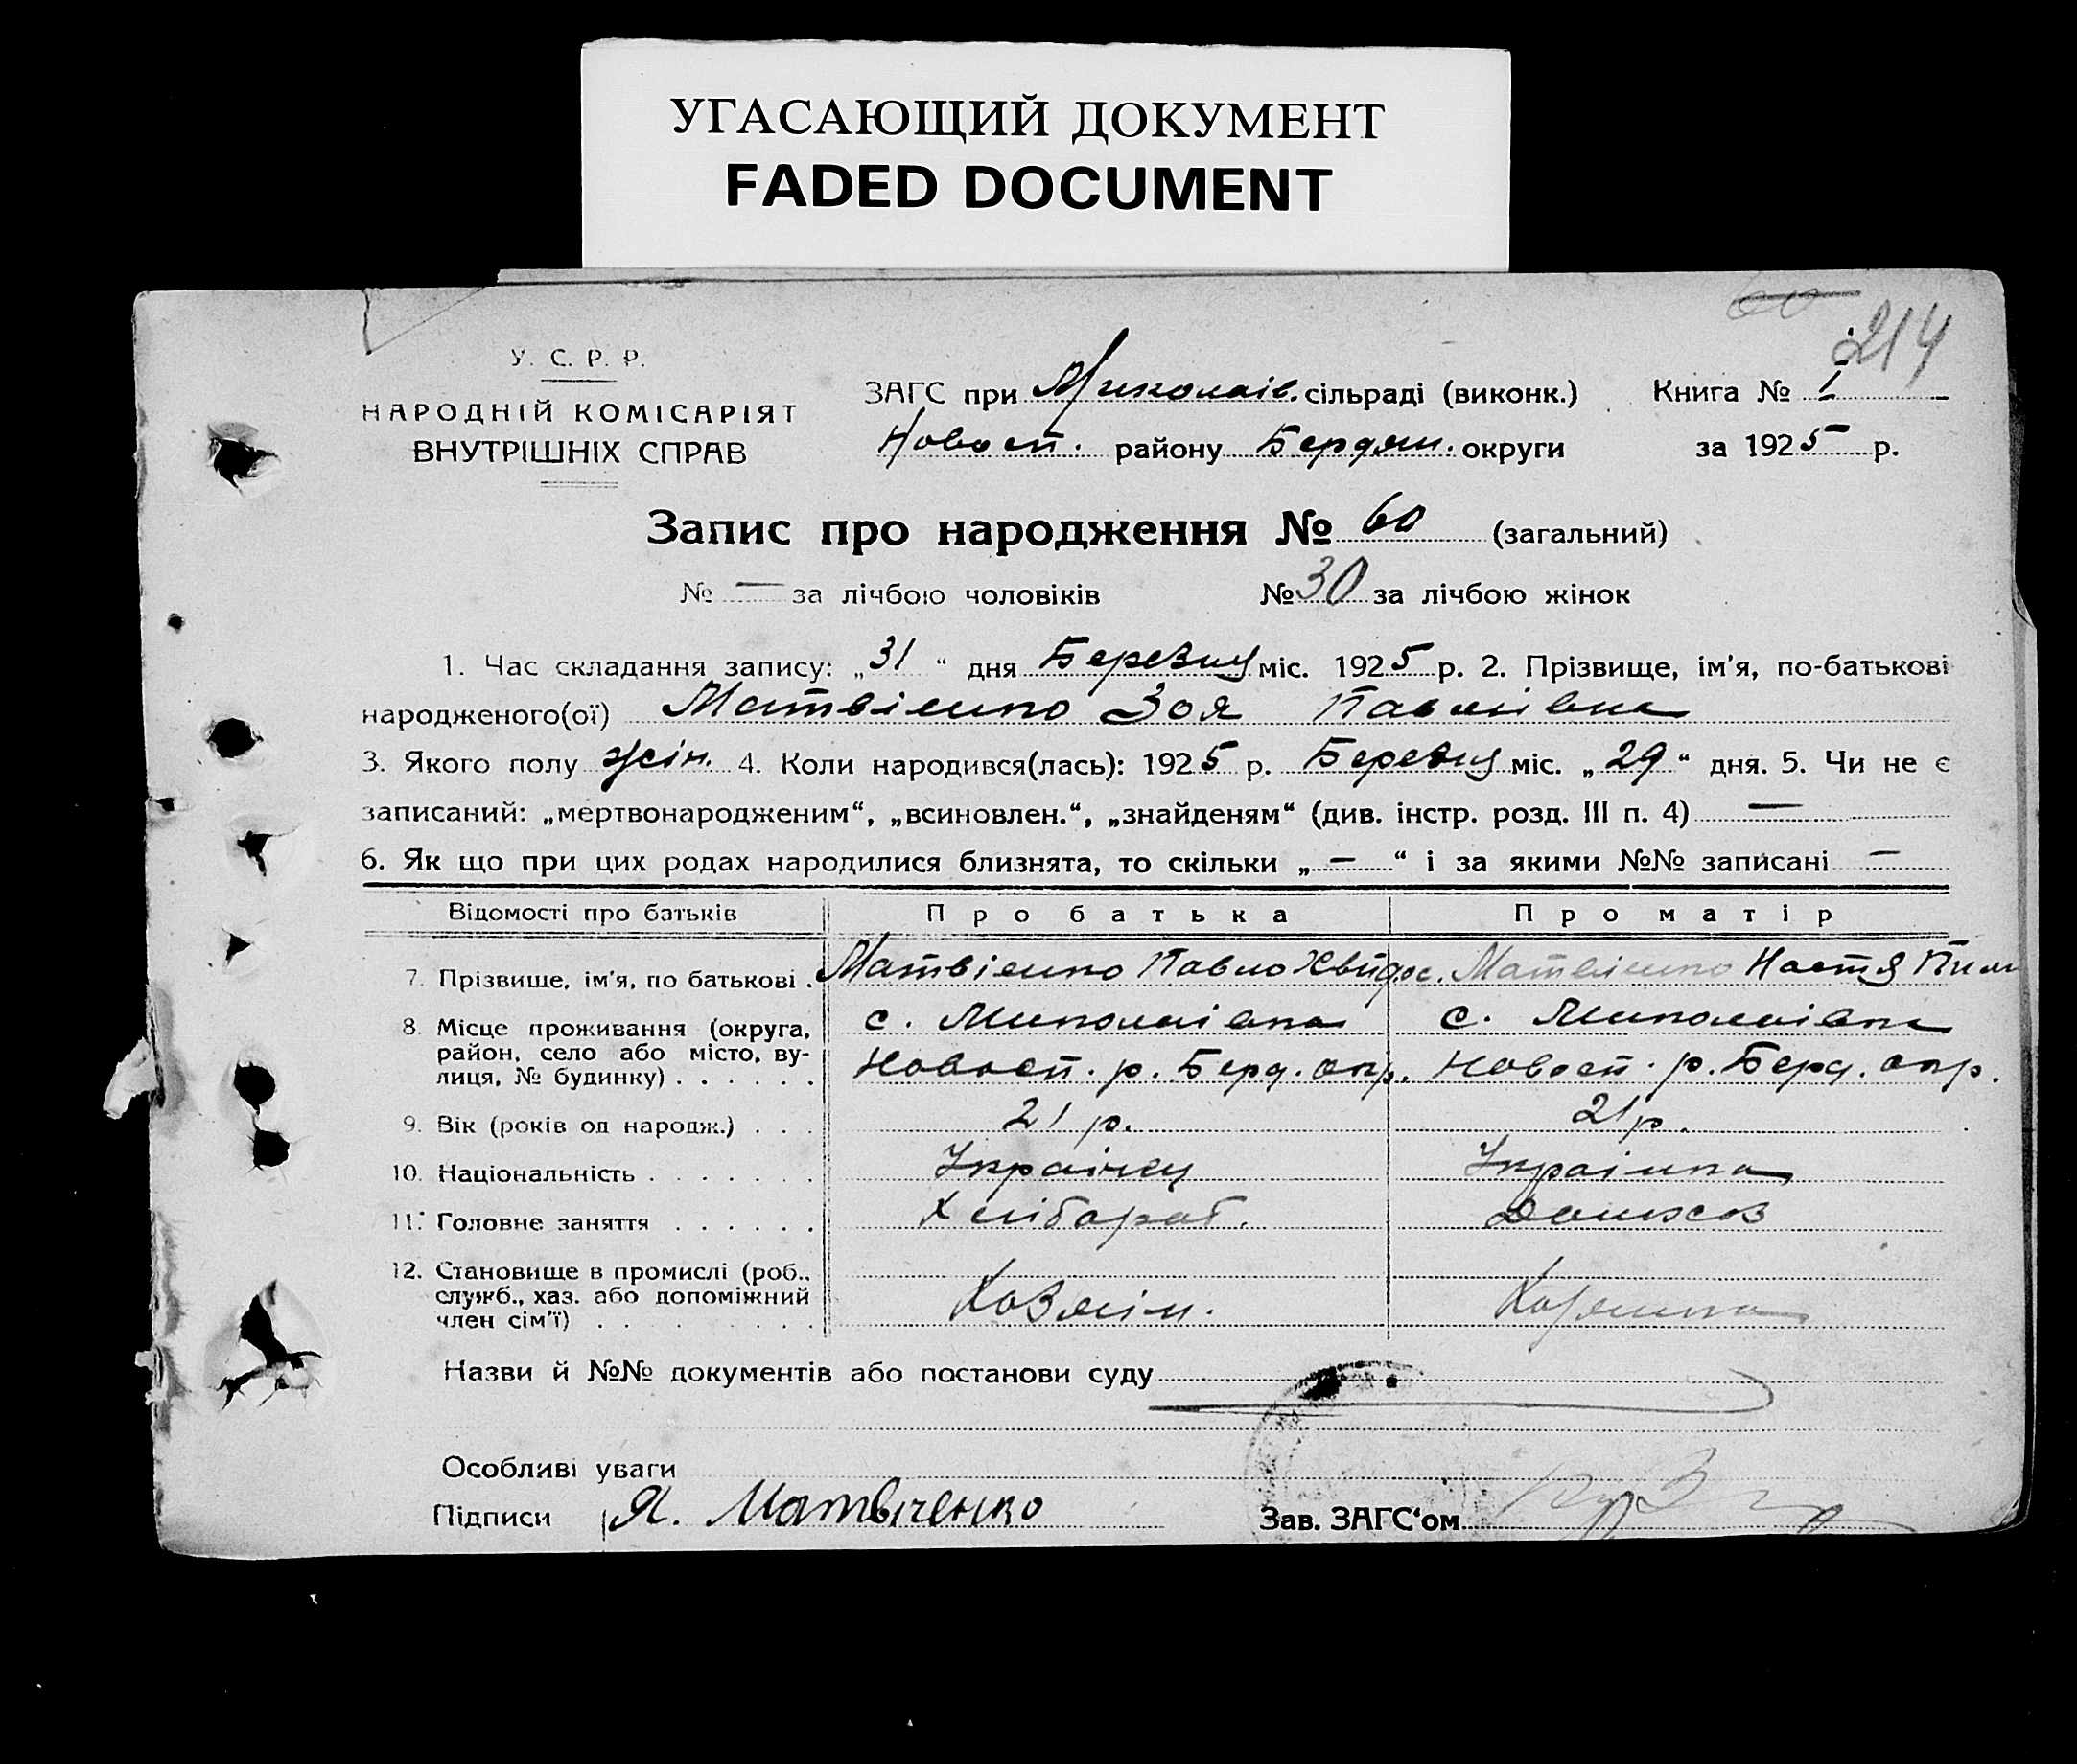 УГАСАЮЩИЙ ДОКУМЕНТ
FADED DOCUMENT
60
214
У. С. Р. Р.
НАРОДНІЙ КОМІСАРІЯТ
ВНУТРІШНІХ СПРАВ
ЗАГС при Миколаїв. сільраді (виконк.)
Новосп. району Бердян. округи
Книга № 1
за 1925 р.
Запис про народження № 60 (загальний)
№ — за лічбою чоловіків № 30 за лічбою жінок
1. Час складання запису: „31“ дня Березня міс. 1925 р. 2. Прізвище, ім'я, по-батькові
народженого(ої) Матвієнко Зоя Павлівна
3. Якого полу жін. 4. Коли народився(лась): 1925 р. Березня міс. „29“ дня. 5. Чи не є
записаний: „мертвонародженим“, „всиновлен.“, „знайденям“ (див. інстр. розд. III п. 4) —
6. Як що при цих родах народилися близнята, то скільки „—“ і за якими №№ записані —
Відомості про батьків Про батька Про матір
7. Прізвище, ім'я, по батькові . Матвієнко Павло Хвидос. Матвієнко Настя Пил
8. Місце проживання (округа, район, село або місто, ву-лиця, № будинку) . . . . . .
с. Миколаївка с. Миколаївка
Новосп. р. Берд. окр. Новосп. р. Берд. окр.
9. Вік (років од народж.) . . . 21 р. 21 р.
10. Національність . . . . . . . Українец Українка
11. Головне заняття . . . . . . Хлібороб. Домхоз
12. Становище в промислі (роб., служб., хаз. або допоміжний член сім'ї) . . . . . . . . .
Хозяїн. Хозяйка
Назви й №№ документів або постанови суду
Особливі уваги
Підписи П. Матвіченко Зав. ЗАГС'ом